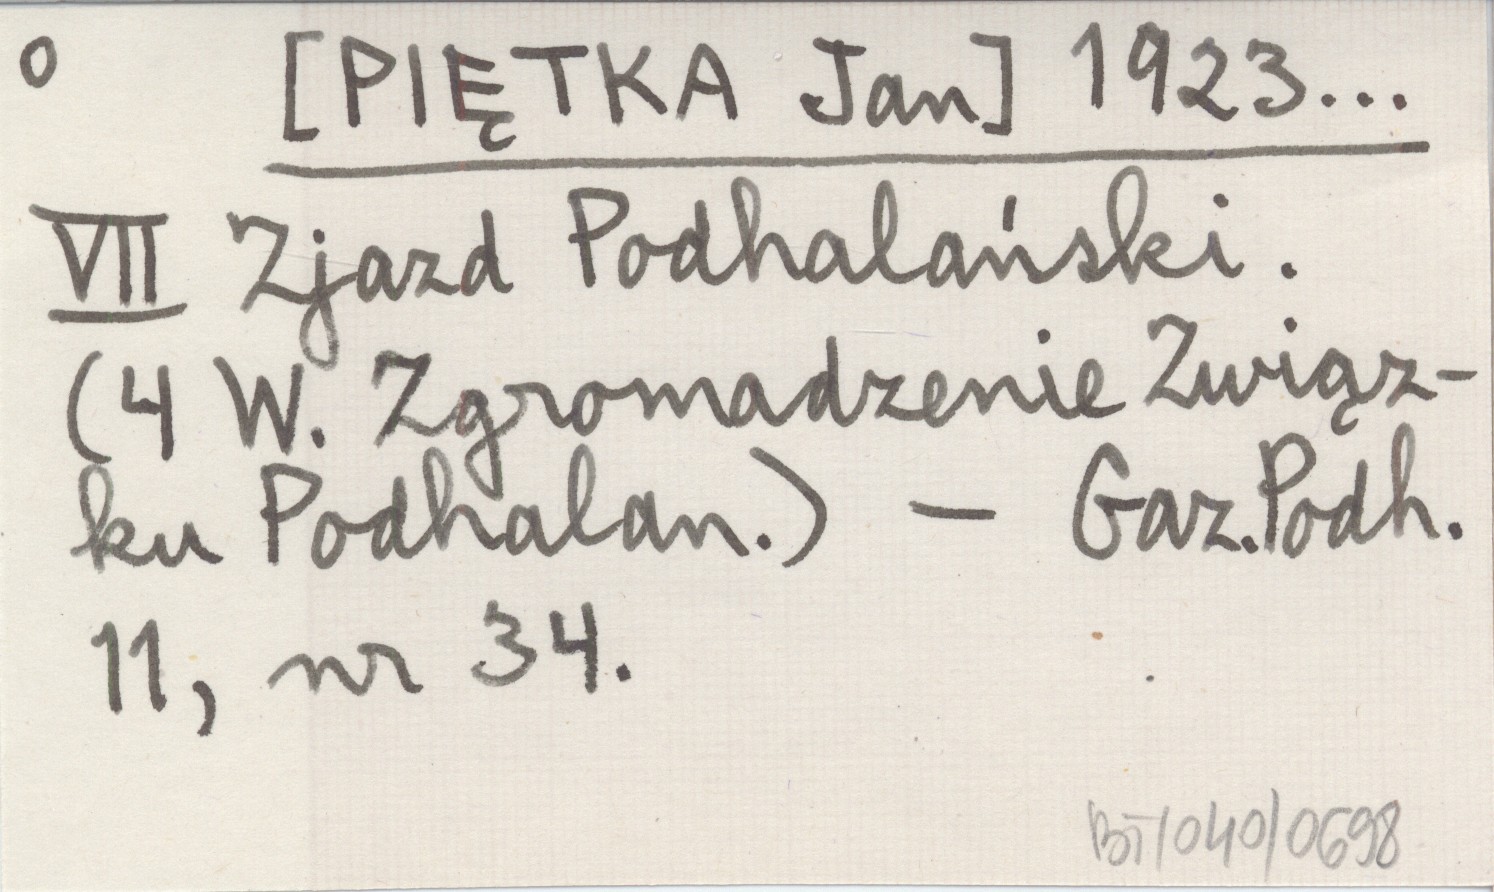 o [PIĘTKA Jan] 1923...
VII Zjazd Podhalański.
(4 W. Zgromadzenie Związ-
ku Podhalan.) — Gaz. Podh.
11, nr 34.
BT/040/0698